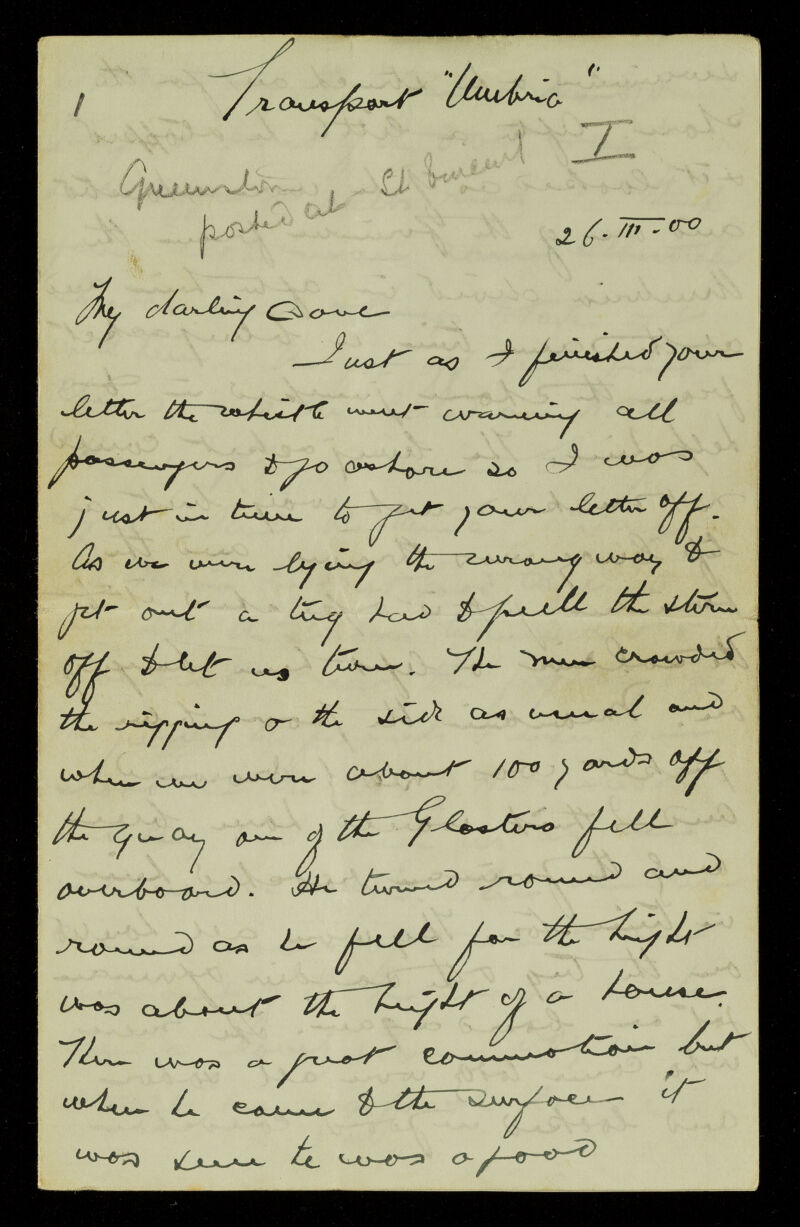 1
Transport "Umbria"
I
Queenstown
posted at St Vincent
26.III.00
My darling Dove
Just as I finished your
letter the whistle went warning all
passengers to go ashore so I was
just in time to get your letter off.
As we were lying the wrong way to
get out a tug had to pull the stern
off to let us turn. The men crowded
the rigging & the side as usual and
when we were about 100 yards off
the quay one of the Glosters fell
overboard. He turned round and
round as he fell for the height
was about the height of a house.
There was a great commotion but
when he came to the surface it
was seen he was a good